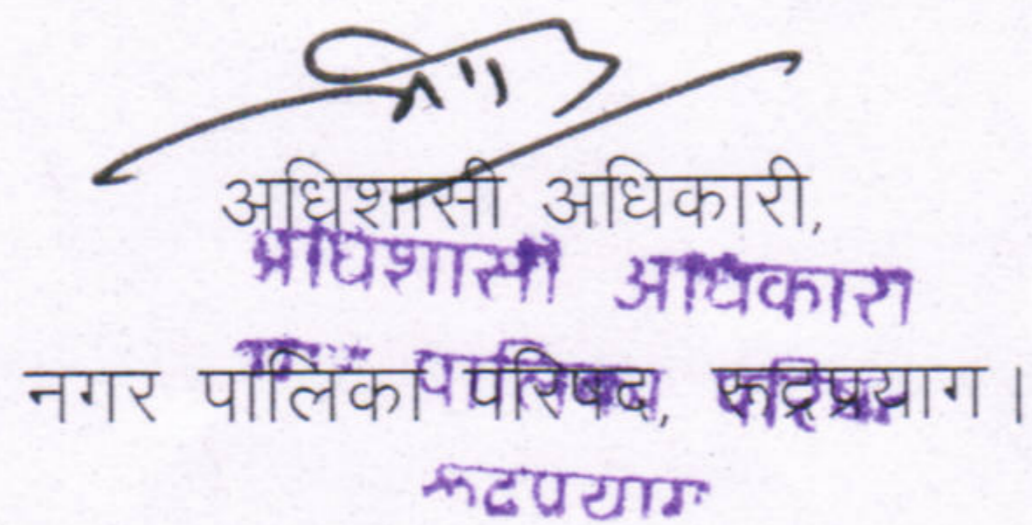 अधिशासी अधिकारी,
अधिशासी अधिकारी
नगर पालिका परिषद, रूद्रप्रयाग।
रूद्रप्रयाग